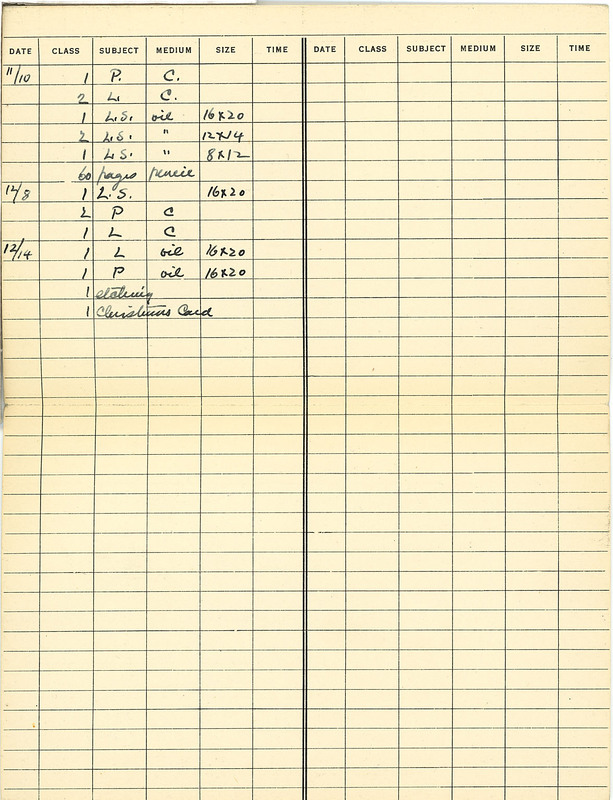 DATE CLASS SUBJECT MEDIUM SIZE TIME DATE CLASS SUBJECT MEDIUM SIZE TIME
11/10 1 P. C.
2 L. C.
1 L.S. oil 16x20
2 L.S. " 12x14
1 L.S. " 8x12
60 pages pencil
12/8 1 L.S. 16x20
2 P C
1 L C
12/14 1 L oil 16x20
1 P oil 16x20
1 etching
1 Christmas Card